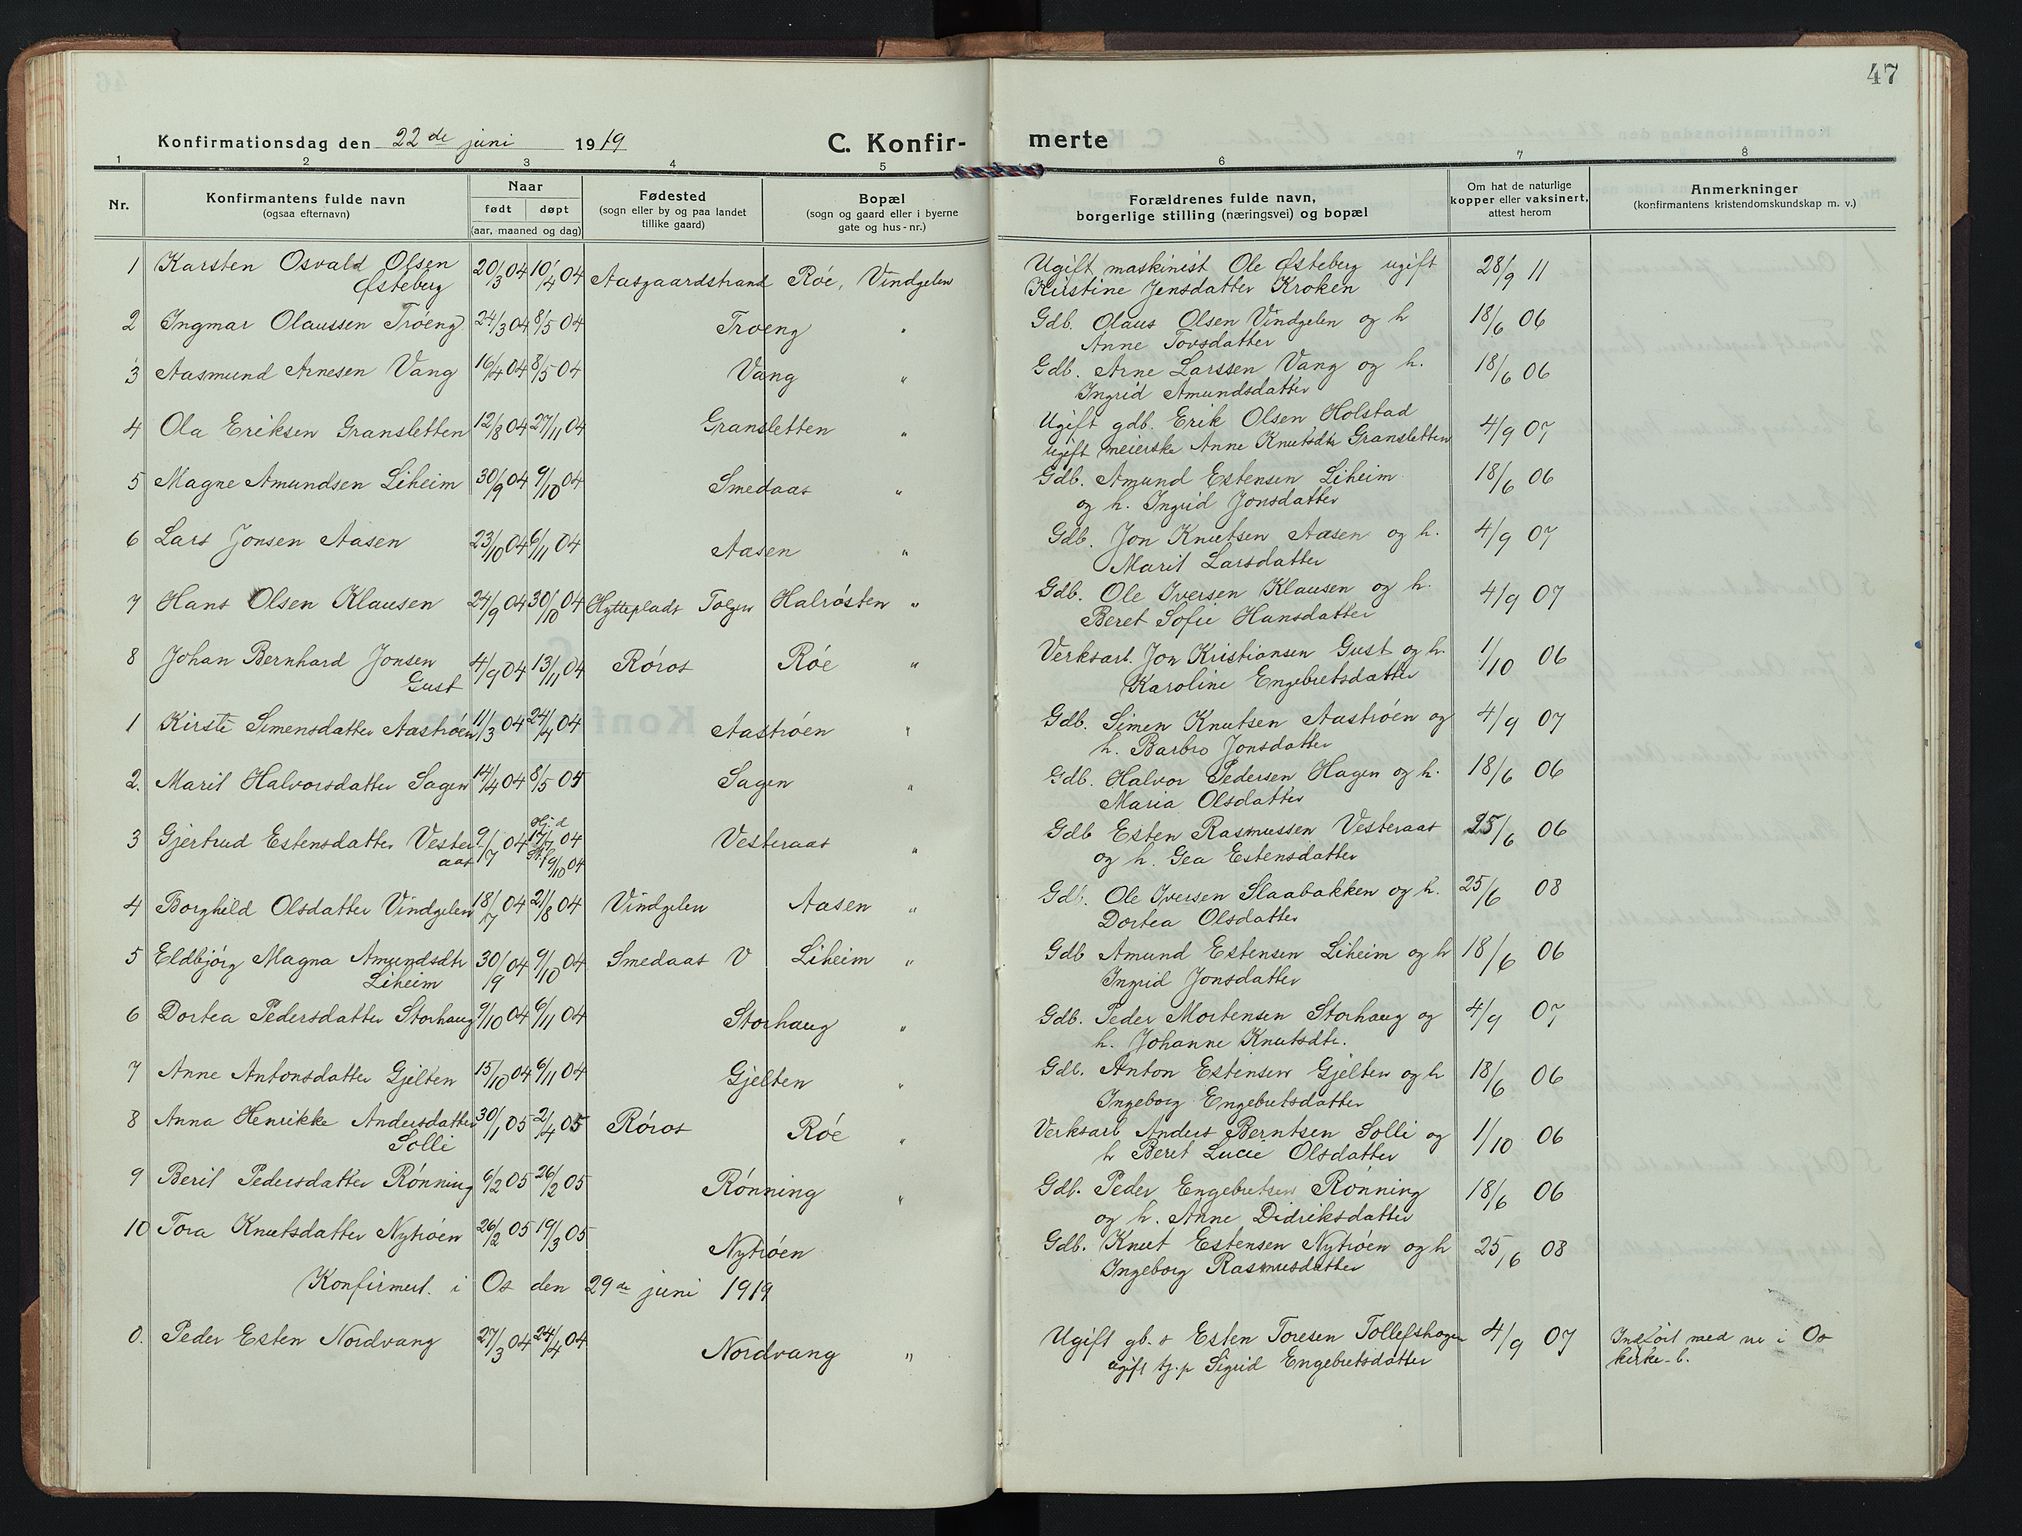 47
Konfirmationsdag den 22de juni 1919 C. Konfir- merte
1 2 3 4 5 6 7 8
Nr. Konfirmantens fulde navn (ogsaa efternavn) Naar født døpt (aar, maaned og dag) Fødested (sogn eller by og paa landet tillike gaard) Bopæl (sogn og gaard eller i byerne gate og hus-nr.) Forældrenes fulde navn, borgerlige stilling (næringsvei) og bopæl Om hat de naturlige kopper eller vaksinert, attest herom Anmerkninger (konfirmantens kristendomskundskap m. v.)
1 Karsten Osvald Olsen Østeberg 20/3 04 10/4 04 Aasgaardstrand Røe, Vindgelen Ugift maskinist Ole Østeberg ugift Kirstine Jensdatter Kroken 28/9 11
2 Ingmar Olaussen Trøeng 24/3 04 8/5 04 Trøeng " Gdb. Olaus Olsen Vindgelen og h Anne Tovsdatter 18/6 06
3 Aasmund Arnesen Vang 16/4 04 8/5 04 Vang " Gdb. Arne Larssen Vang og h. Ingrid Amundsdatter 18/6 06
4 Ola Eriksen Gransletten 12/8 04 27/11 04 Gransletten " Ugift gdb. Erik Olsen Holstad ugift meierske Anne Knutsdtr Gransletten 4/9 07
5 Magne Amundsen Liheim 30/9 04 9/10 04 Smedaas " Gdb. Amund Estensen Liheim og h. Ingrid Jonsdatter 18/6 06
6 Lars Jonsen Aasen 23/10 04 6/11 04 Aasen " Gdb. Jon Knutsen Aasen og h. Marit Larsdatter 4/9 07
7 Hans Olsen Klausen 24/9 04 30/10 04 Hytteplads Tolgen Halrøsten " Gdb. Ole Iversen Klausen og h. Beret Sofie Hansdatter 4/9 07
8 Johan Bernhard Jonsen Gust 4/9 04 13/11 04 Røros Røe " Verksarb. Jon Kristiansen Gust og h. Karoline Engebretsdatter 1/10 06
1 Kirsti Simensdatter Aastrøen 11/3 04 24/4 04 Aastrøen " Gdb. Simen Knutsen Aastrøen og h. Barbro Jonsdatter 4/9 07
2. Marit Halvorsdatter Sagen 14/4 04 8/5 04 Sagen " Gdb. Halvor Pedersen Hagen og h. Maria Olsdatter 18/6 06
3 Gjertrud Estensdatter Vesteraas 9/7 04 Hj. d 17/7 04 9/10 04 Vesteraas " Gdb Esten Rasmussen Vesteraas og h. Gea Estensdatter 25/6 06
4 Borghild Olsdatter Vindgelen 18/7 04 21/8 04 Vindgelen Aasen " Gdb. Ole Iversen Slaabakken og h. Dortea Olsdatter 25/6 08
5 Eldbjørg Magna Amundsdtr Liheim 30/9 04 9/10 04 Smedaas V Liheim " Gdb Amund Estensen Liheim og h Ingrid Jonsdatter 18/6 06
6 Dortea Pedersdatter Storhaug 9/10 04 6/11 04 Storhaug " Gdb. Peder Mortensen Storhaug og h. Johanne Knutsdtr. 4/9 07
7 Anne Antonsdatter Gjelten 15/10 04 6/11 04 Gjelten " Gdb. Anton Estensen Gjelten og h Ingeborg Engebretsdatter 18/6 06
8 Anna Henrikke Andersdatter Solli 30/1 05 2/4 05 Røros Røe " Verksarb Anders Berntsen Solli og h Beret Lucie Olsdatter 1/10 06
9 Berit Pedersdatter Rønning 6/2 05 26/2 05 Rønning " Gdb. Peder Engebretsen Rønning og h. Anne Didriksdatter 18/6 06
10 Tora Knutsdatter Nytrøen 26/2 05 19/3 05 Nytrøen Gdb. Knut Estensen Nytrøen og h Ingeborg Rasmusdatter 25/6 08
Konfirmert. i Os den 29de juni 1919
0. Peder Esten Nordvang 27/3 04 24/4 04 Nordvang " Ugift gb. s Esten Toresen Tollefshagen ugift tj.p Sigrid Engebretsdatter 4/9 07 Indført med nr i Os kirke-b.